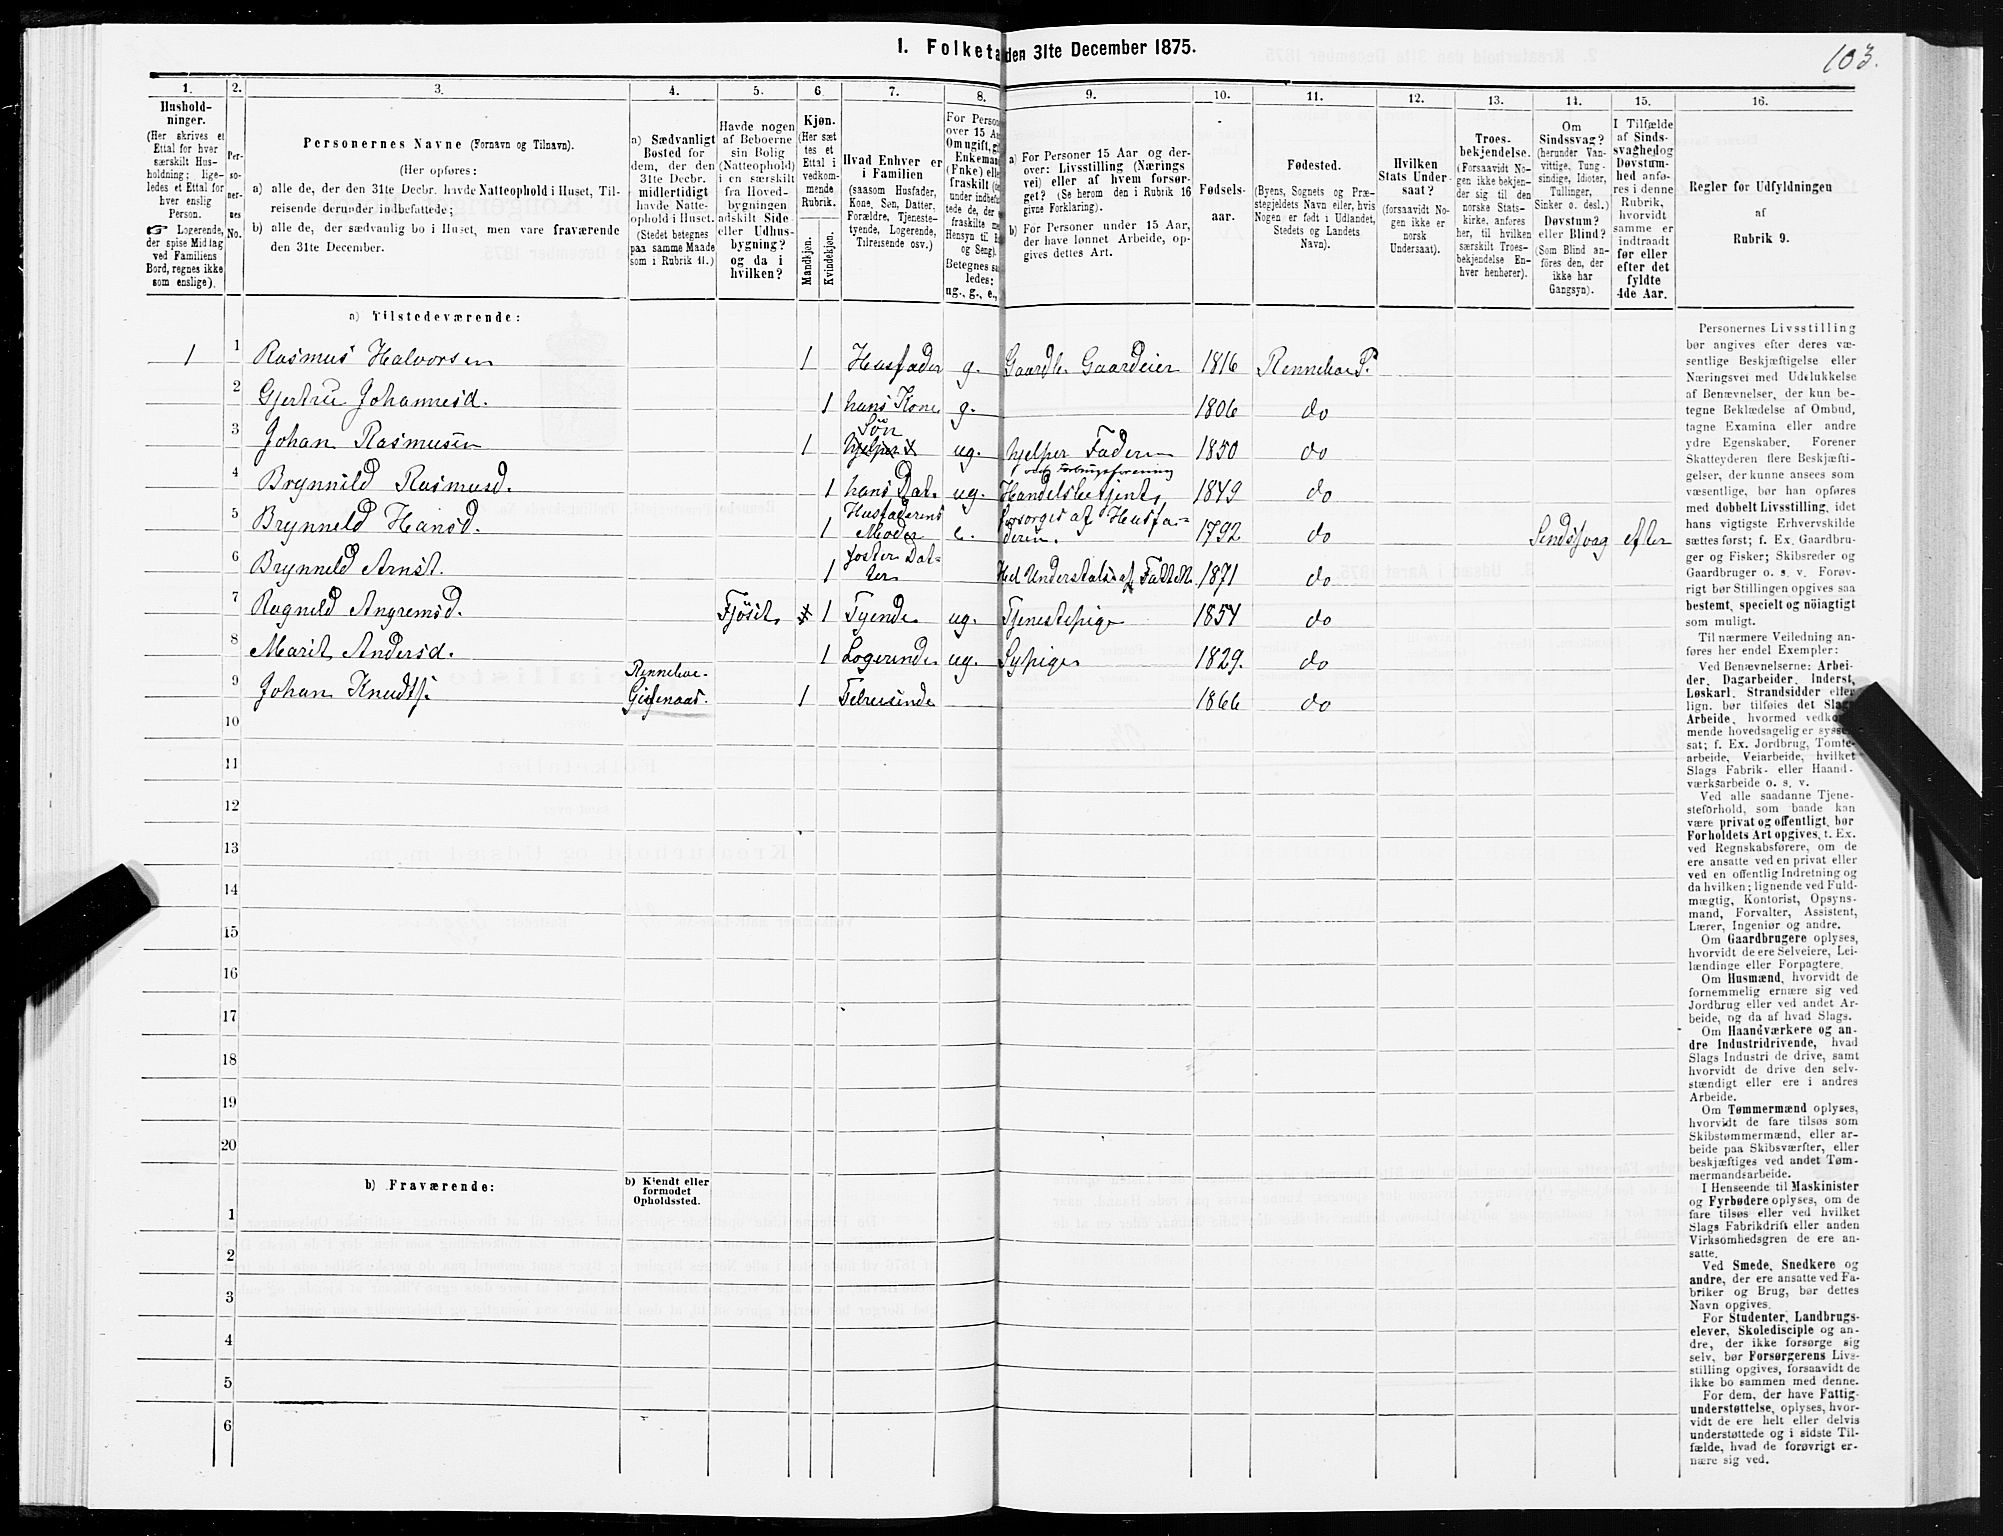 1. Folketa
den 31te December 1875.
103.
1.
2.
3.
4.
5.
6.
7.
8.
9.
10.
11.
12.
13.
14.
15.
16.
Hushold-
ninger.
(Her skrives et
Ettal for hver
særskilt Hus-
holdning; lige-
ledes et Ettal for
hver enslig
Person.
☞ Logerende,
der spise Middag
ved Familiens
Bord, regnes ikke
som enslige).
Per-
so-
ner-
nes
No.
Personernes Navne (Fornavn og Tilnavn).
(Her opføres:
a) alle de, der den 31te Decbr. havde Natteophold i Huset, Til-
reisende derunder indbefattede;
b) alle de, der sædvanlig bo i Huset, men vare fraværende
den 31te December.
a) Sædvanligt
Bosted for
dem, der den
31te Decbr.
midlertidigt
havde Natte-
ophold i Huset.
(Stedet betegnes
paa samme Maade
som i Rubrik 11.)
Havde nogen
af Beboerne
sin Bolig
(Natteophold)
i en særskilt
fra Hoved-
bygningen
adskilt Side-
eller Udhus-
bygning?
og da i
hvilken?
Kjøn.
(Her sæt-
tes et
Ettal i
vedkom-
mende
Rubrik.
Mandkjøn.
Kvindekjøn.
Hvad Enhver er
i Familien
(saasom Husfader,
Kone, Søn, Datter,
Forældre, Tjeneste-
tyende, Logerende,
Tilreisende osv.)
For Person
over 15 Aa
Om ugift, g
Enkeman
(Enke) elle
fraskilt (d
under indbef
tede de, der
fraskilte m
Hensyn til
og Seng).
Betegnes sa
ledes:
ug., g., e.,
a) For Personer 15 Aar og der-
over: Livsstilling (Nærings
vei) eller af hvem forsør-
get? (Se herom den i Rubrik 16
givne Forklaring).
b) For Personer under 15 Aar,
der have lønnet Arbeide, op-
gives dettes Art.
Fødsels-
aar.
Fødested.
(Byens, Sognets og Præ-
stegjeldets Navn eller, hvis
Nogen er født i Udlandet,
Stedets og Landets
Navn).
Hvilken
Stats Under-
saat?
(forsaavidt No-
gen ikke er
norsk
Undersaat).
Troes-
bekjendelse.
(Forsaavidt No-
gen ikke bekjen-
der sig til den
norske Stats-
kirke, anføres
her, til hvilken
særskilt Troes-
bekjendelse En-
hver henhører).
Om
Sindssvag?
(herunder Van-
vittige, Tung-
sindige, Idioter,
Tullinger,
Sinker o. desl.)
Døvstum?
eller Blind?
(Som Blind an-
føres den, der
ikke har
Gangsyn).
I Tilfælde
af Sinds-
svaghed og
Døvstum-
hed anfø-
res i denne
Rubrik,
hvorvidt
samme er
indtraadt
før eller
efter det
fyldte
4de Aar.
Regler for Udfyldningen
af
Rubrik 9.
a) Tilstedeværende:
1 1 Rasmus Halvorsen 1 Husfader g. Gaardbr Gaardeier 1816 Renneboe P.
2 Gjertru Johannesd. 1 hans Kone g. 1806 do
Søn
3 Johan Rasmusen 1 hjelper ug. hjelper Faderen 1850 do
4 Brynnild Rasmusd. 1 hans Dat. ug. Handelsbetjent 1849 do
Husfaderens Forsorges af Husfa-
5 Brynneld Hansd. 1 Moder e. deren. 1792 do Sindssvag efter
foster Dat-
6 Brynneld Arnst. 1 ter 1871 do
7 Ragneld Angremsd. Fjöset 1 Tyende ug. Tjenestepige 1854 do
8 Marit Andersd. 1 Logerende ug. Sypige 1829. do
Renneboe-
9 Johan Knudts. Gisnaas. 1 Telreisende 1866 do
10
11
12
13
14
15
16
17
18
19
20
b) Fraværende:
b) Kjendt eller
formodet
Opholdssted.
1
2
3
4
5
6
Personernes Livsstilling
bør angives efter deres væ-
sentlige Beskjæftigelse eller
Næringsvei med Udelukkelse
af Benævnelser, der kun be-
tegne Beklædelse af Ombud,
tagne Examina eller andre
ydre Egenskaber. Forener
Skatteyderen flere Beskjæfti-
gelser, der kunne ansees som
væsentlige, bør han opføres
med dobbelt Livsstilling, idet
hans vigtigste Erhvervskilde
sættes først; f. Ex. Gaardbru-
ger og Fisker; Skibsreder og
Gaardbruger o. s. v. Forøv-
rigt bør Stillingen opgives saa
bestemt, specielt og nöiagtigt
som muligt.
Til nærmere Veiledning an-
føres her endel Exempler:
Ved Benævnelserne: Arbei-
der, Dagarbeider, Inderst,
Løskarl, Strandsidder eller
lign. bør tilføies det Slags
Arbeide, hvormed vedkom-
mende hovedsagelig er syssel-
sat; f. Ex. Jordbrug, Tomte-
arbeide, Veiarbeide, hvilket
Slags Fabrik- eller Haand-
værksarbeide o. s. v.
Ved alle saadanne Tjene-
steforhold, som baade kan
være privat og offentligt, bør
Forholdets Art opgives, t. Ex.
ved Regnskabsførere, om de
ere ansatte ved en privat eller
ved en offentlig Indretning og
da hvilken; lignende ved Fuld-
mægtig, Kontorist, Opsyns-
mand, Forvalter, Assistent,
Lærer, Ingeniør og andre.
Om Gaardbrugere oplyses,
hvorvidt de ere Selveiere, Lei-
lændinge eller Forpagtere.
Om Husmænd, hvorvidt de
fornemmelig ernære sig ved
Jordbrug eller ved andet Ar-
beide, og da af hvad Slags.
Om Haandværkere og an-
dre Industridrivende, hvad
Slags Industri de drive, samt
hvorvidt de drive den selv-
stændigt eller ere i andres
Arbeide.
Om Tømmermænd oplyses,
hvorvidt de fare tilsøs som
Skibstømmermænd, eller ar-
beide paa Skibsværfter, eller
beskjæftiges ved andet Tøm-
mermandsarbeide.
I Henseende til Maskinister
og Fyrbødere oplyses, om de
fare tilsøs eller ved hvilket
Slags Fabrikdrift eller anden
Virksomhedsgren de ere an-
satte.
Ved Smede, Snedkere og
andre, der ere ansatte ved Fa-
briker og Brug, bør dettes
Navn opgives.
For Studenter, Landbrugs-
elever, Skoledisciple og an-
dre, der ikke forsørge sig
selv, bør Forsørgerens Livs-
stilling opgives, forsaavidt de
ikke bo sammen med denne.
For dem, der have Fattig-
understøttelse, oplyses, hvor-
vidt de ere helt eller delvis
understøttede og i sidste Til-
fælde, hvad de forøvrigt er-
nære sig ved.